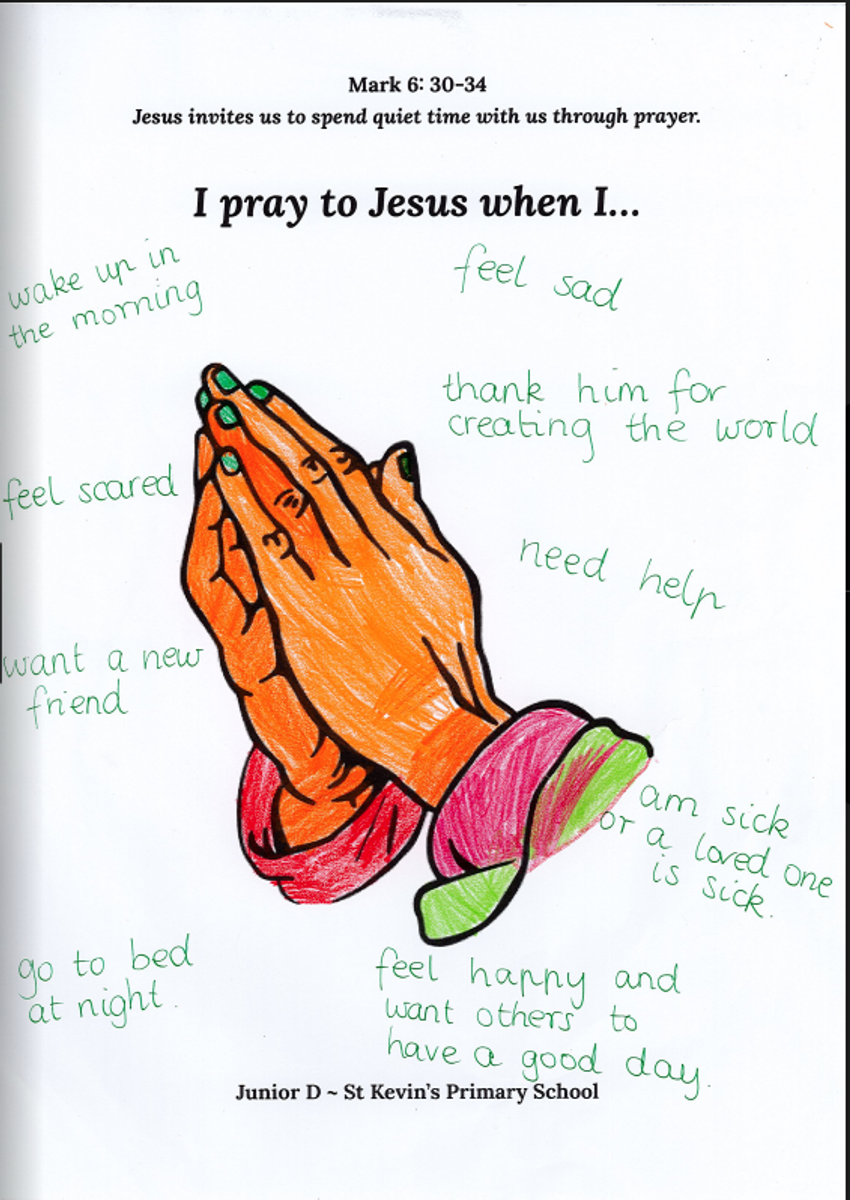 Mark 6: 30-34
Jesus invites us to spend quiet time with us through prayer.
I pray to Jesus when I...
wake up in
the morning
feel sad
thank him for
creating the world
feel scared
need help
want a new
friend
am sick
or a loved one
is sick.
go to bed
at night.
feel happy and
want others to
have a good day.
Junior D ~ St Kevin's Primary School